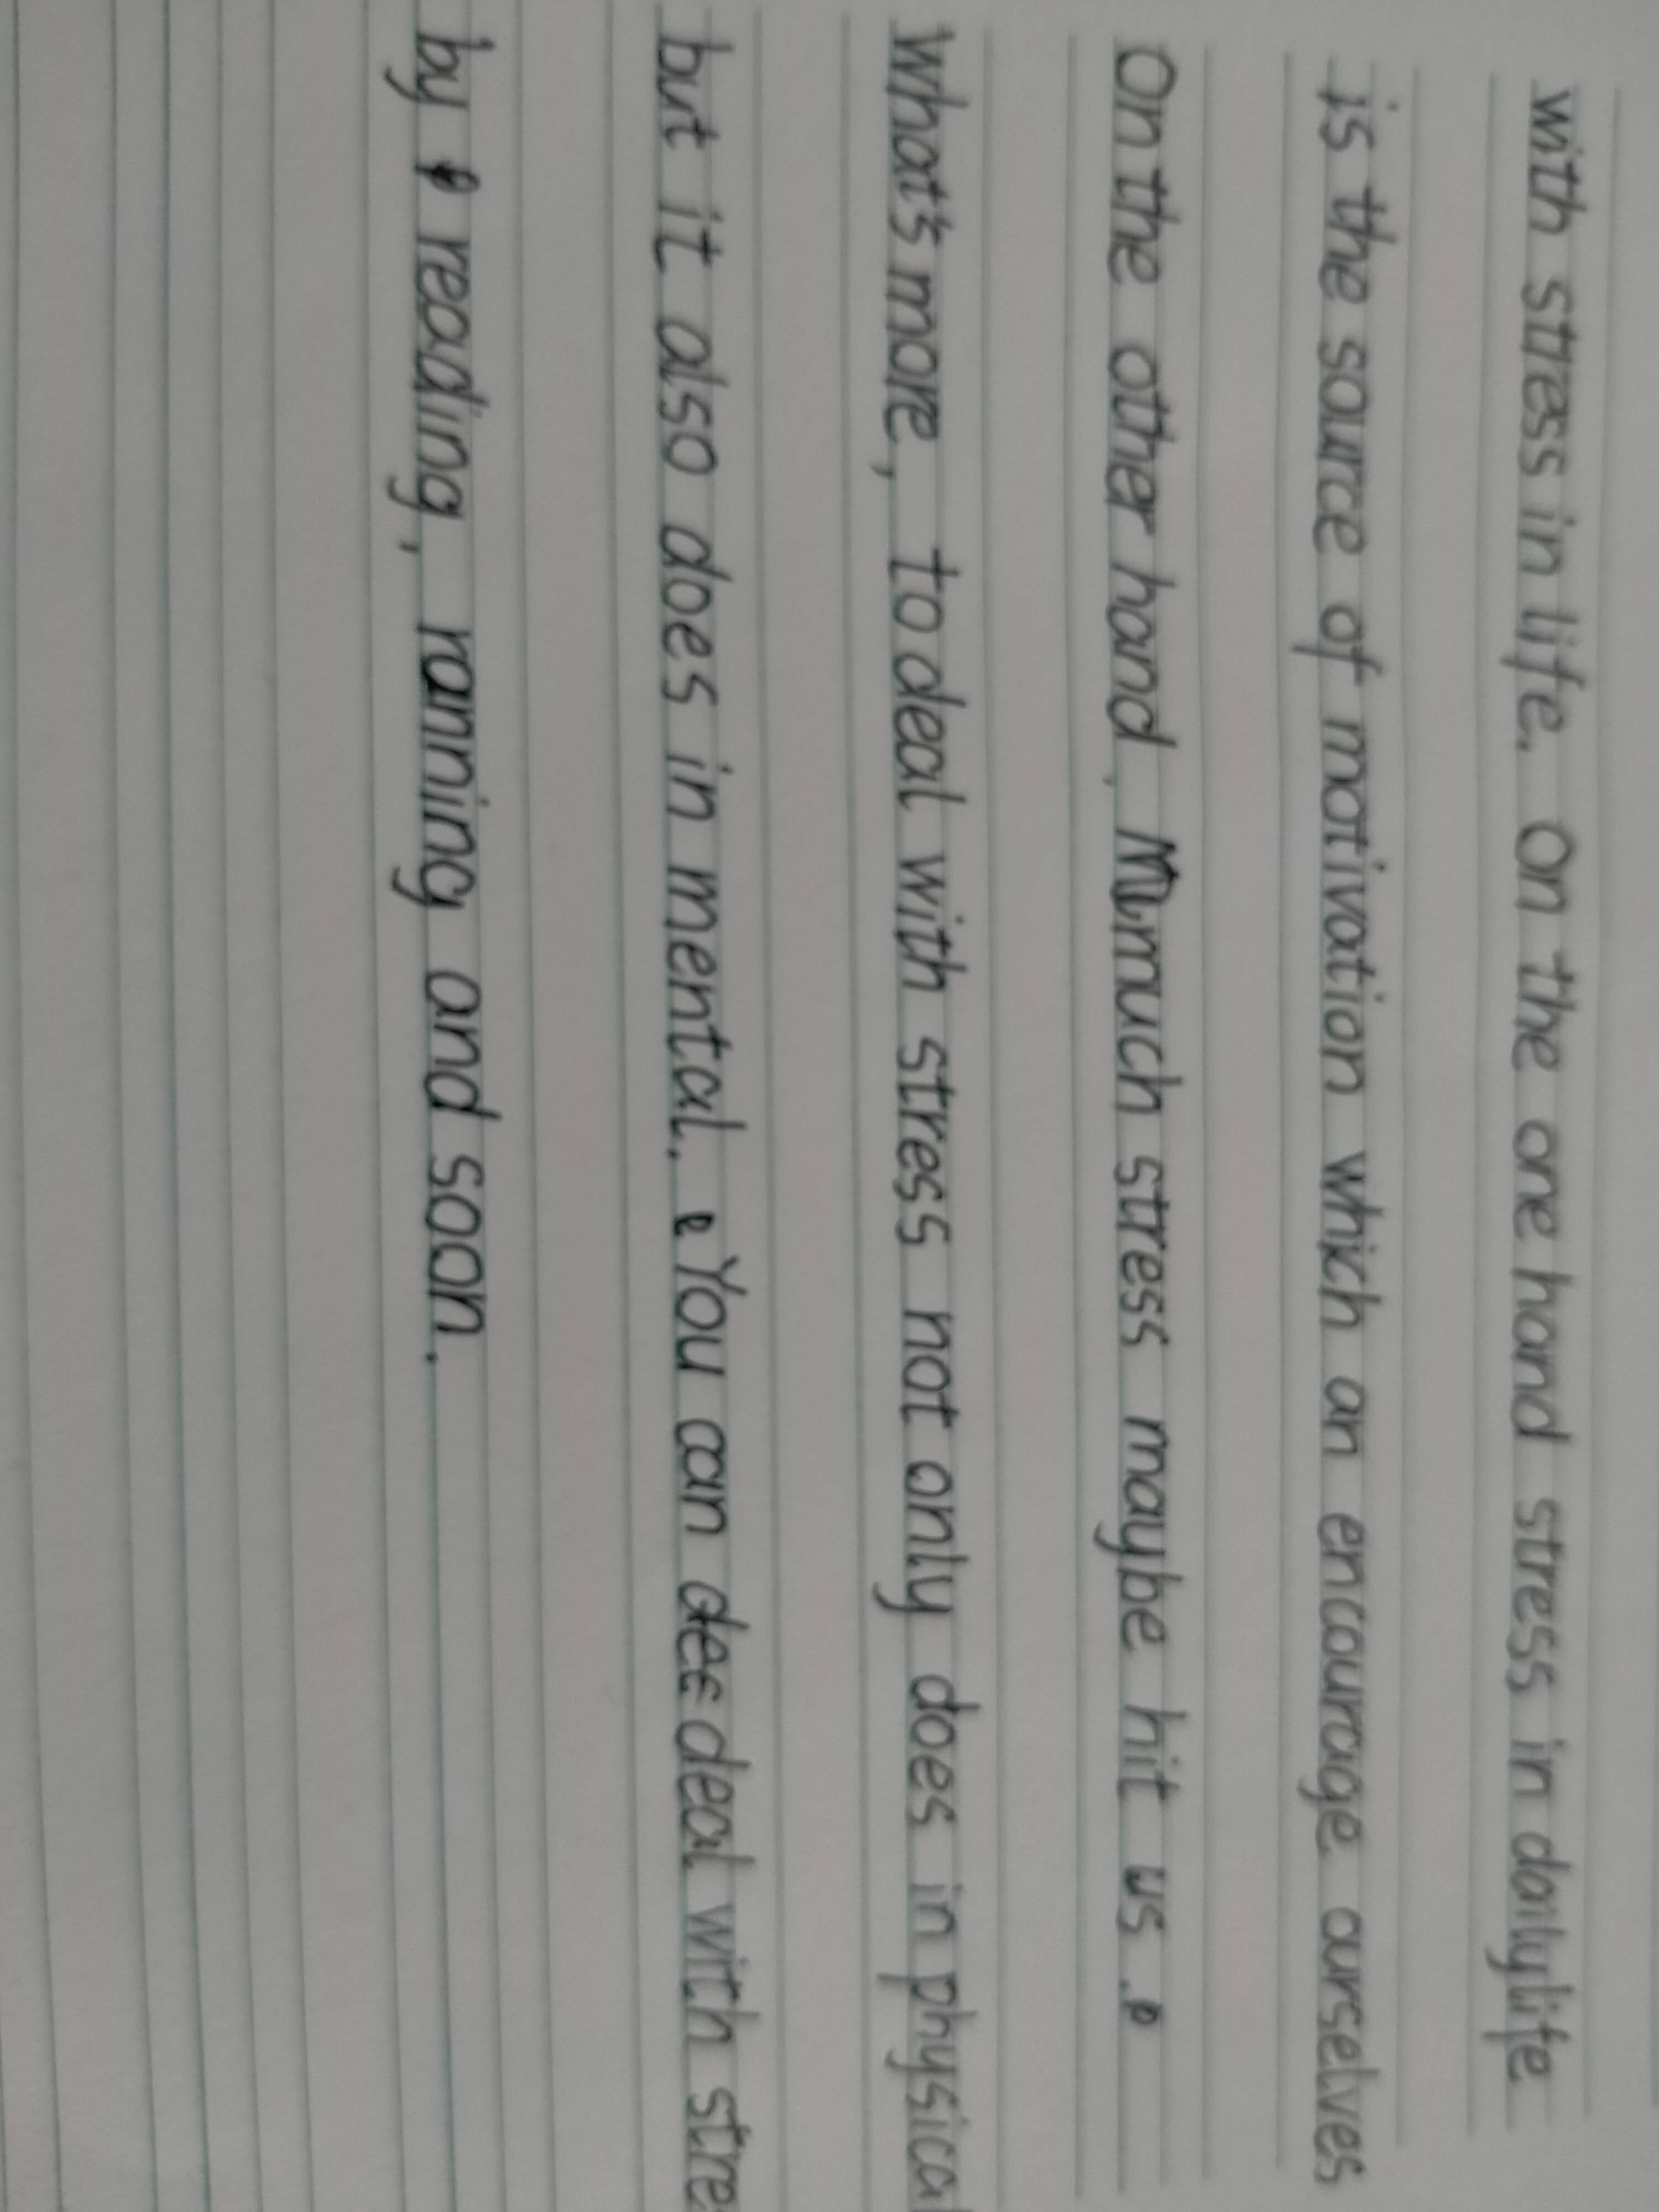 with stress in life. On the one hand stress in dailylife
is the source of motivation which an encourage ourselves
On the other hand. much stress maybe hit us.
What's more, to deal with stress not only does in physical
but it also does in mental. You can deal with stre
by reading, ranning and soon.